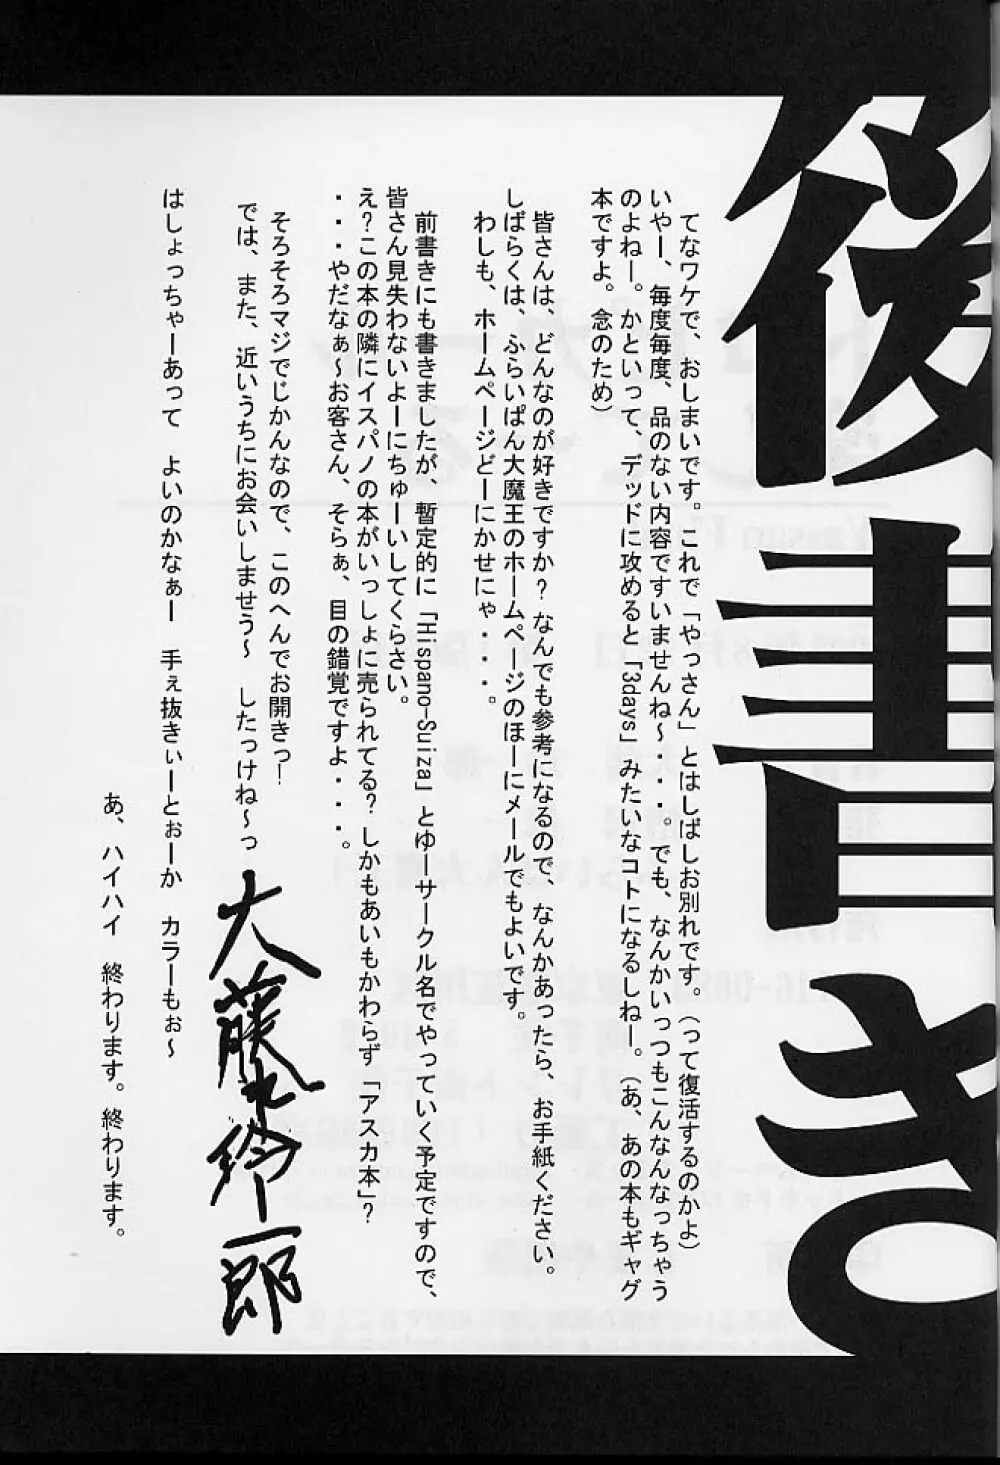 後書き
てなワケで、おしまいです。これで「やっさん」とはしばしお別れです。(って復活するのかよ)
いやー、毎度毎度、品のない内容ですいませんね〜・・・。でも、なんかいっつもこんなんなっちゃう
のよねー。かといって、デッドに攻めると「3days」みたいなコトになるしねー。(あ、あの本もギャグ
本ですよ。念のため)
皆さんは、どんなのが好きですか? なんでも参考になるので、なんかあったら、お手紙ください。
しばらくは、ふらいぱん大魔王のホームページのほーにメールでもよいです。
わしも、ホームページどーにかせにゃ・・・。
前書きにも書きましたが、暫定的に「Hispano-Suiza」とゆーサークル名でやっていく予定ですので、
皆さん見失わないよーにちゅーいしてくらさい。
え?この本の隣にイスパノの本がいっしょに売られてる? しかもあいもかわらず「アスカ本」?
・・・やだなぁ〜お客さん、そらぁ、目の錯覚ですよ・・・。
そろそろマジでじかんなので、このへんでお開きっ!
では、また、近いうちにお会いしませう〜 したっけね〜っ
大藤玲一郎
はしょっちゃーあって よいのかなぁー 手ぇ抜きぃーとぉーか カラーもぉ〜
あ、ハイハイ 終わります。終わります。